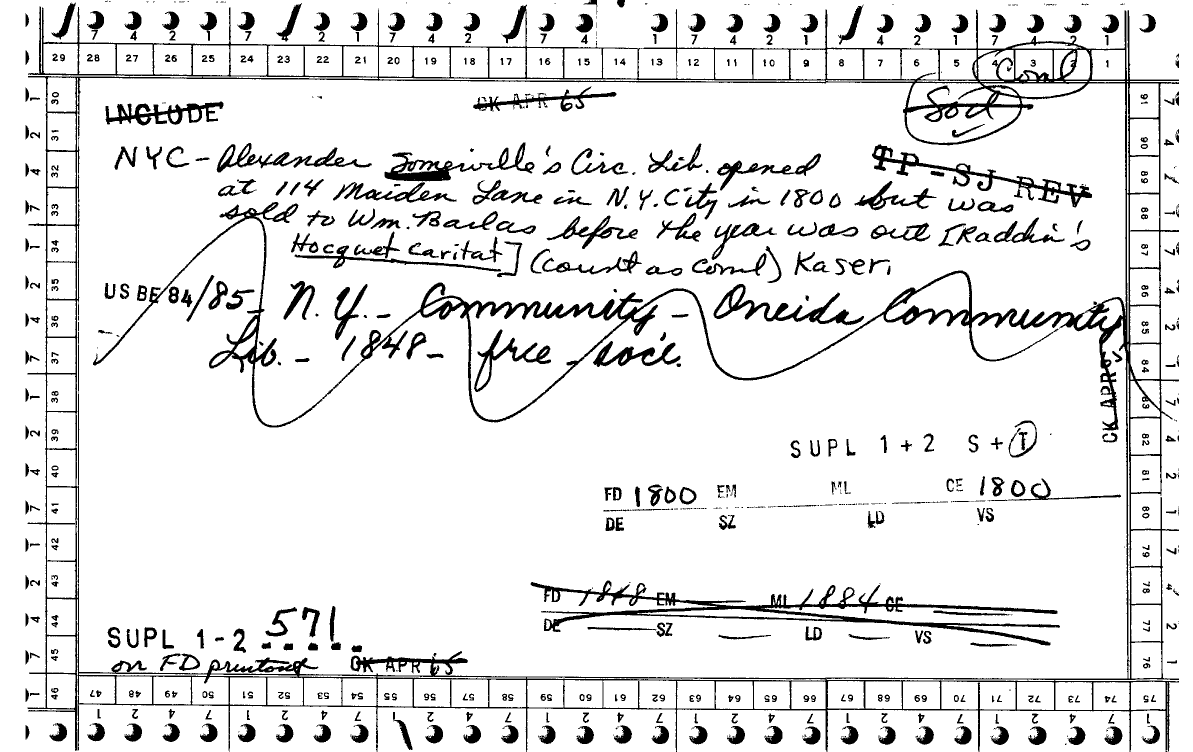 29 28 27 26 25 24 23 22 21 20 19 18 17 16 15 14 13 12 11 10 9 8 7 6 5 4 3 2 1
Coml
INCLUDE
CK APR 65
Socl
TP-SJ REV
NYC - Alexander Somerville's Circ. Lib. opened
at 114 Maiden Lane in N.Y. City in 1800 but was
sold to Wm. Barlas before the year was out [Raddin's
Hocquet Caritat] (count as coml) Kaser.
US BE 84/85 - N.Y. - Community - Oneida Community
Lib. - 1848 - free - socl.
CK APR
SUPL 1 + 2 S + T
FD 1800 EM ML CE 1800
DE SZ LD VS
FD 1848 EM ML 1884 CE
DE SZ LD VS
SUPL 1-2 571
on FD printout CK APR 65
30 31 32 33 34 35 36 37 38 39 40 41 42 43 44 45 46
91 90 89 88 87 86 85 84 83 82 81 80 79 78 77 76 75
47 48 49 50 51 52 53 54 55 56 57 58 59 60 61 62 63 64 65 66 67 68 69 70 71 72 73 74